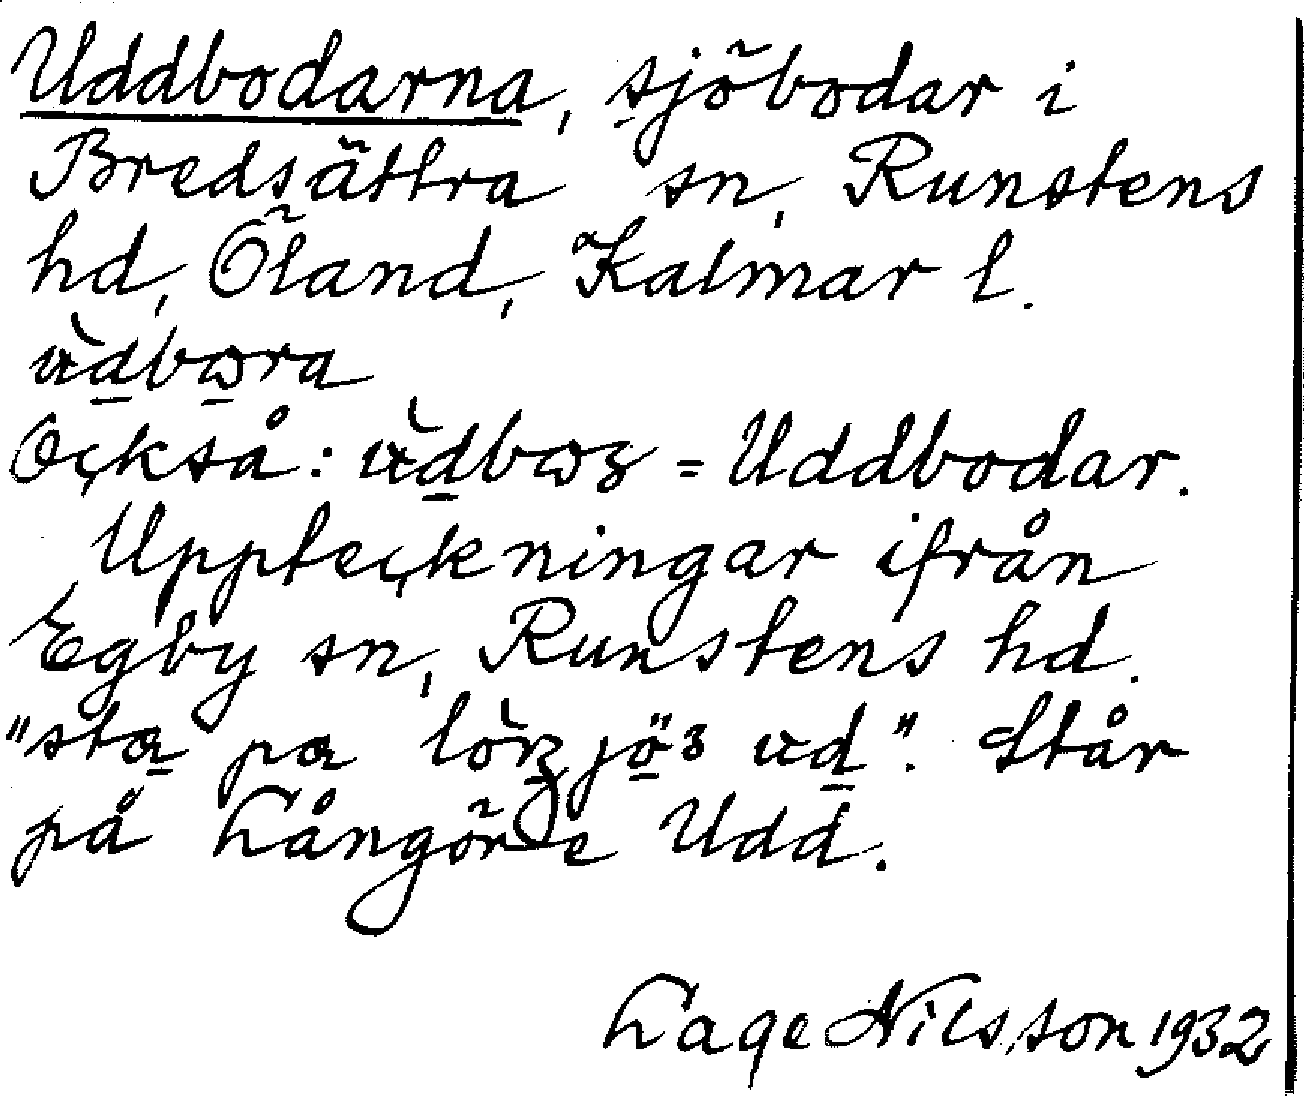 Uddbodarna, sjöbodar i
Bredsättra sn, Runstens
hd, Öland, Kalmar l.
ùdbωra
Också: ùdbωz = Uddbodar.
Uppteckningar ifrån
Egby sn, Runstens hd.
"sta pa ud". Står
på Långöre Udd.
Lage Nilsson 1932